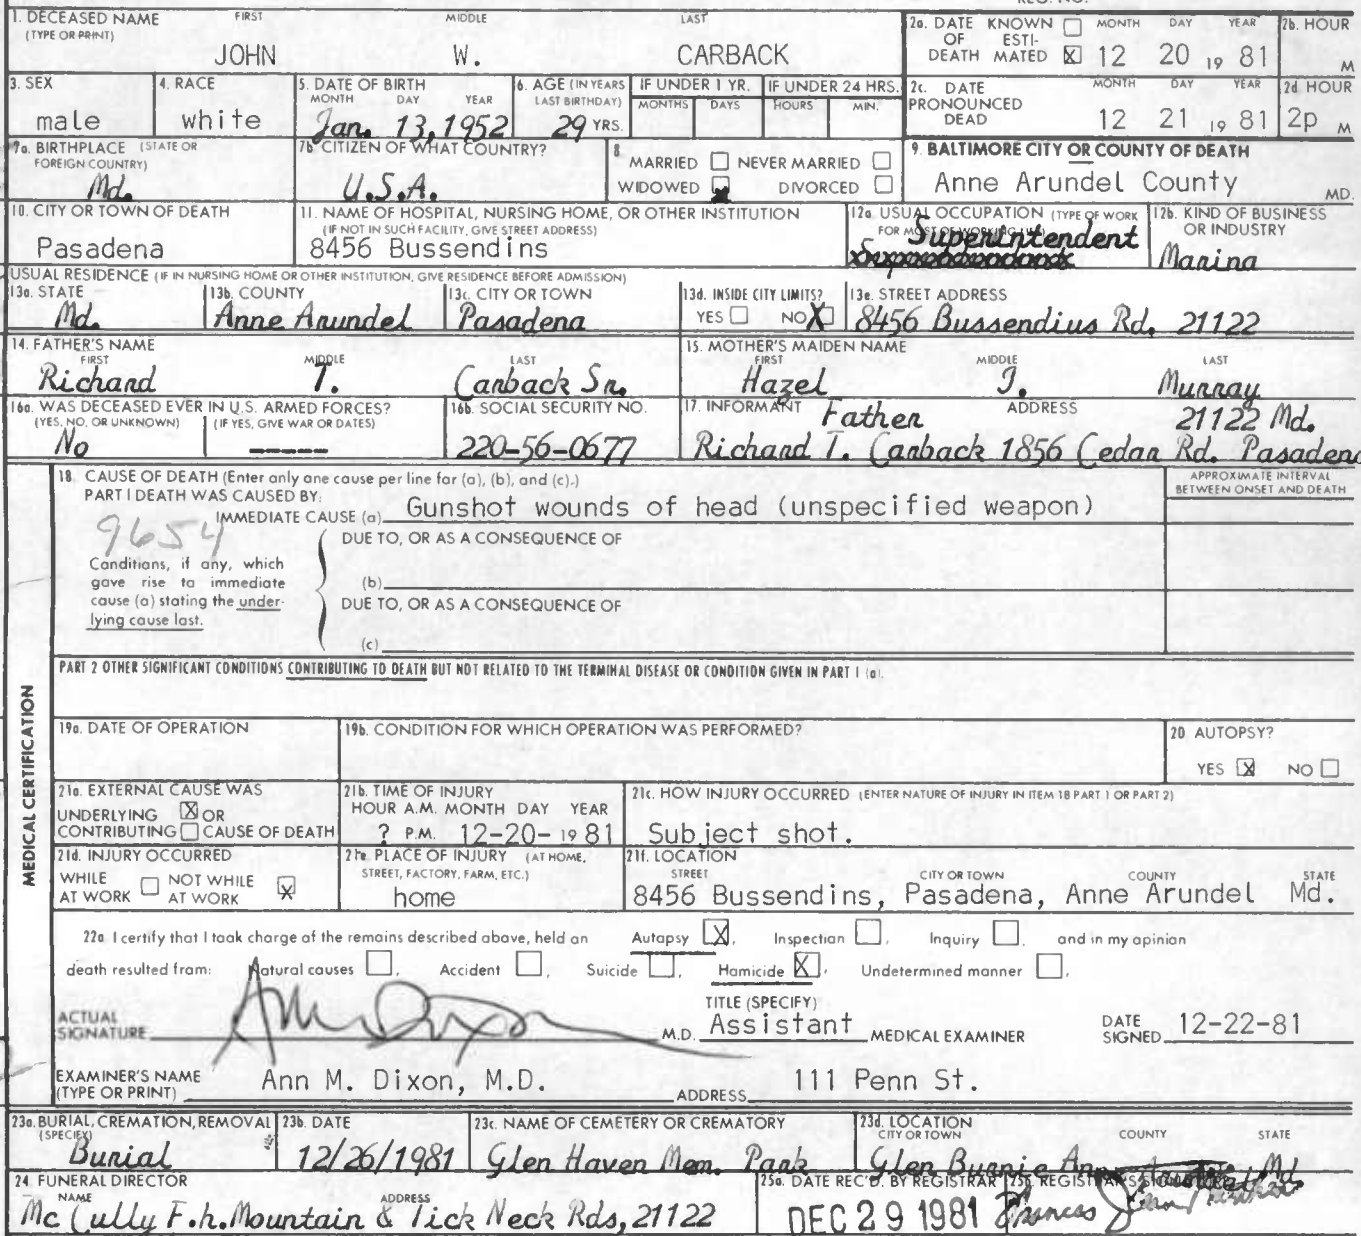 REG. NO.
1. DECEASED NAME FIRST MIDDLE LAST
(TYPE OR PRINT)
JOHN W. CARBACK
2a. DATE OF DEATH KNOWN ☐ ESTI-MATED ☒ MONTH DAY YEAR
12 20 19 81
2b. HOUR
M
3. SEX
male
4. RACE
white
5. DATE OF BIRTH
MONTH DAY YEAR
Jan. 13, 1952
6. AGE (IN YEARS LAST BIRTHDAY)
29 YRS.
IF UNDER 1 YR.
MONTHS DAYS
IF UNDER 24 HRS.
HOURS MIN.
2c. DATE PRONOUNCED DEAD MONTH DAY YEAR
12 21 19 81
2d HOUR
2p M
7a. BIRTHPLACE (STATE OR FOREIGN COUNTRY)
Md.
7b. CITIZEN OF WHAT COUNTRY?
U.S.A.
8 MARRIED ☐ NEVER MARRIED ☐
WIDOWED ☒ DIVORCED ☐
9. BALTIMORE CITY OR COUNTY OF DEATH
Anne Arundel County MD.
10. CITY OR TOWN OF DEATH
Pasadena
11. NAME OF HOSPITAL, NURSING HOME, OR OTHER INSTITUTION
(IF NOT IN SUCH FACILITY, GIVE STREET ADDRESS)
8456 Bussendins
12a USUAL OCCUPATION (TYPE OF WORK FOR MOST OF WORKING LIFE)
Superintendent
12b. KIND OF BUSINESS OR INDUSTRY
Marina
USUAL RESIDENCE (IF IN NURSING HOME OR OTHER INSTITUTION, GIVE RESIDENCE BEFORE ADMISSION)
13a. STATE
Md.
13b. COUNTY
Anne Arundel
13c. CITY OR TOWN
Pasadena
13d. INSIDE CITY LIMITS?
YES ☐ NO ☒
13e. STREET ADDRESS
8456 Bussendius Rd. 21122
14. FATHER'S NAME
FIRST MIDDLE LAST
Richard T. Carback Sr.
15. MOTHER'S MAIDEN NAME
FIRST MIDDLE LAST
Hazel J. Murray
16a. WAS DECEASED EVER IN U.S. ARMED FORCES?
(YES, NO, OR UNKNOWN) (IF YES, GIVE WAR OR DATES)
No -----
16b. SOCIAL SECURITY NO.
220-56-0677
17. INFORMANT ADDRESS
Father 21122 Md.
Richard T. Carback 1856 Cedar Rd. Pasadena
18. CAUSE OF DEATH (Enter only one cause per line for (a), (b), and (c).)
PART I DEATH WAS CAUSED BY:
IMMEDIATE CAUSE (a) Gunshot wounds of head (unspecified weapon)
APPROXIMATE INTERVAL BETWEEN ONSET AND DEATH
9654
DUE TO, OR AS A CONSEQUENCE OF
Conditions, if any, which gave rise to immediate cause (a) stating the under-lying cause last.
(b)
DUE TO, OR AS A CONSEQUENCE OF
(c)
PART 2 OTHER SIGNIFICANT CONDITIONS CONTRIBUTING TO DEATH BUT NOT RELATED TO THE TERMINAL DISEASE OR CONDITION GIVEN IN PART 1 (a).
MEDICAL CERTIFICATION
19a. DATE OF OPERATION
19b. CONDITION FOR WHICH OPERATION WAS PERFORMED?
20 AUTOPSY?
YES ☒ NO ☐
21a. EXTERNAL CAUSE WAS
UNDERLYING ☒ OR
CONTRIBUTING ☐ CAUSE OF DEATH
21b. TIME OF INJURY
HOUR A.M. MONTH DAY YEAR
? P.M. 12-20- 19 81
21c. HOW INJURY OCCURRED (ENTER NATURE OF INJURY IN ITEM 18 PART 1 OR PART 2)
Subject shot.
21d. INJURY OCCURRED
WHILE AT WORK ☐ NOT WHILE AT WORK ☒
21e. PLACE OF INJURY (AT HOME, STREET, FACTORY, FARM, ETC.)
home
21f. LOCATION
STREET CITY OR TOWN COUNTY STATE
8456 Bussendins, Pasadena, Anne Arundel Md.
22a. I certify that I took charge of the remains described above, held an Autopsy ☒, Inspection ☐, Inquiry ☐, and in my opinion
death resulted from: Natural causes ☐, Accident ☐, Suicide ☐, Homicide ☒, Undetermined manner ☐,
ACTUAL SIGNATURE Ann Dixon M.D.
TITLE (SPECIFY) Assistant MEDICAL EXAMINER
DATE SIGNED 12-22-81
EXAMINER'S NAME (TYPE OR PRINT) Ann M. Dixon, M.D. ADDRESS 111 Penn St.
23a. BURIAL, CREMATION, REMOVAL (SPECIFY)
Burial
23b. DATE
12/26/1981
23c. NAME OF CEMETERY OR CREMATORY
Glen Haven Mem. Park
23d. LOCATION
CITY OR TOWN COUNTY STATE
Glen Burnie Anne Arundel Md.
24. FUNERAL DIRECTOR
NAME ADDRESS
Mc Cully F.h. Mountain & Tick Neck Rds, 21122
25a. DATE REC'D. BY REGISTRAR
DEC 29 1981
25b. REGISTRAR'S
Frances